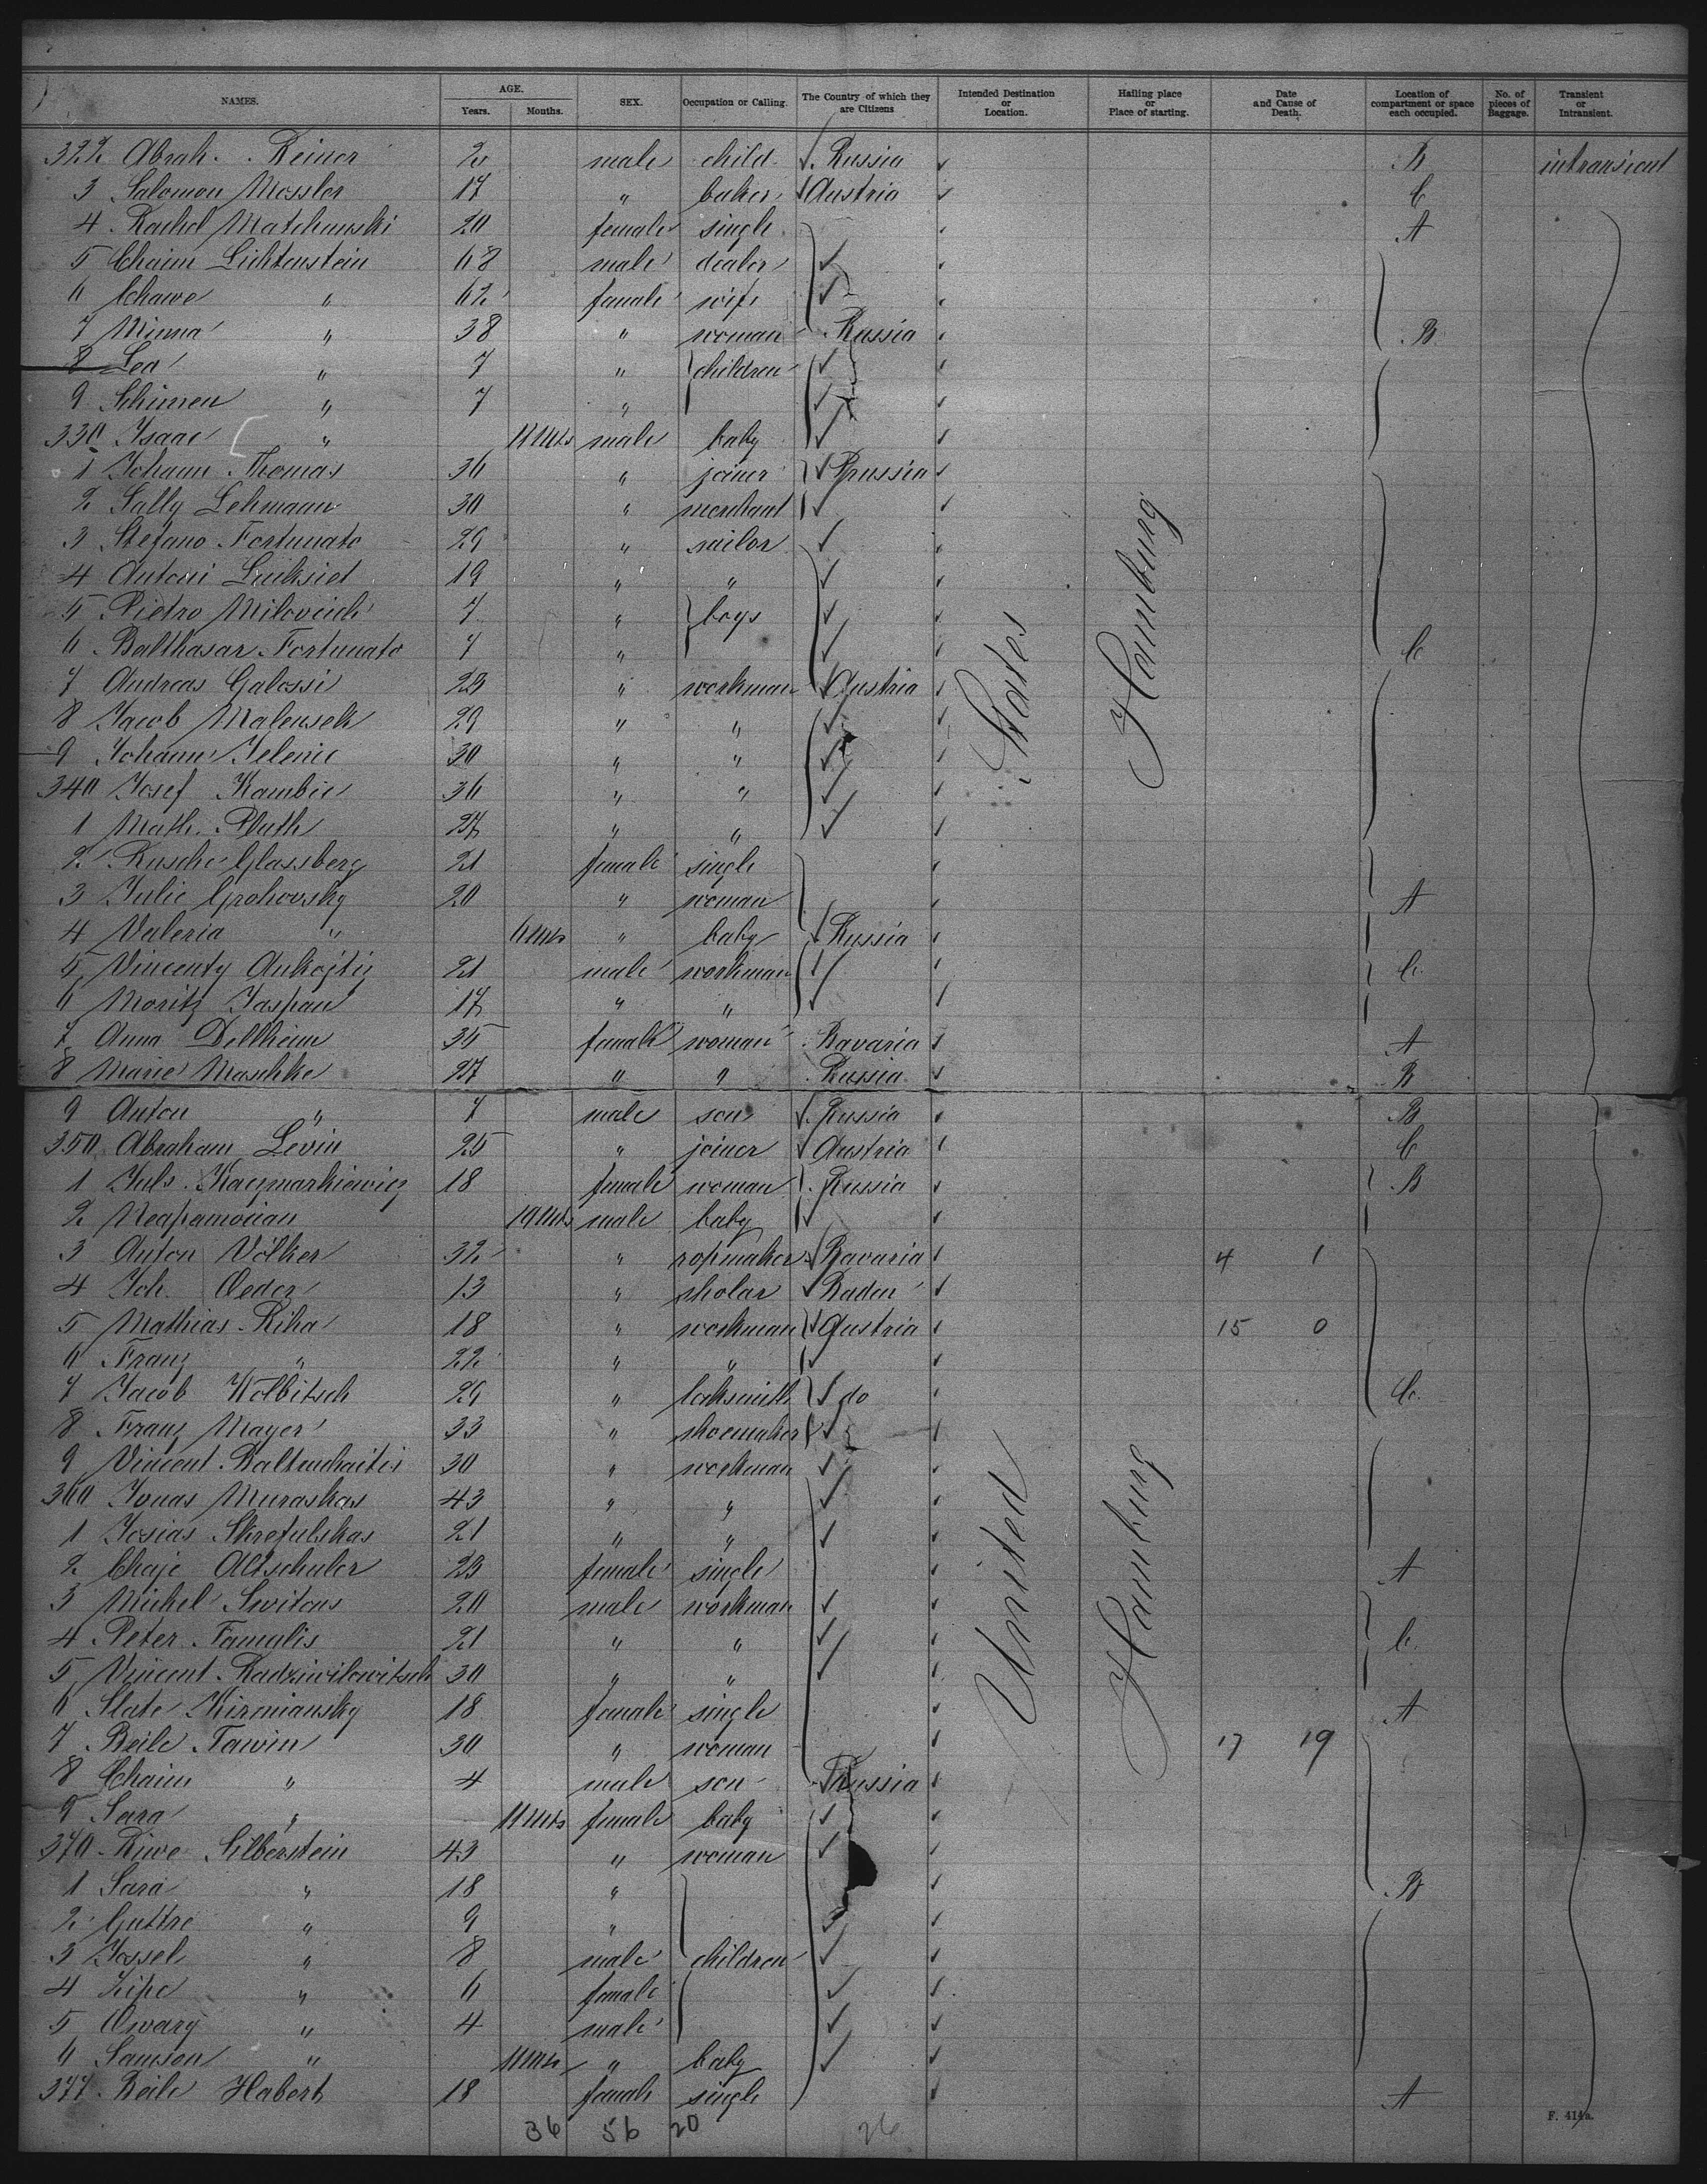 NAMES. AGE. Years. Months. SEX. Occupation or Calling. The Country of which they are Citizens Intended Destination or Location. Hailing place or Place of starting. Date and Cause of Death. Location of compartment or space each occupied. No. of pieces of Baggage. Transient or Intransient.
322 Abrah. Reiner 2 male child Russia B intransient
3 Salomon Messler 17 " baker Austria C
4 Rachel Matchanski 20 female single A
5 Chaim Lichtenstein 68 male dealer
6 Chawe " 62 female wife
7 Minna " 38 " woman Russia B
8 Lea " 7 " children
9 Schimen " 7 "
330 Isaac " 11 Mts male baby
1 Johann Thomas 36 " joiner Prussia
2 Sally Lehmann 30 " merchant
3 Stefano Fortunato 29 " sailor
4 Antoni 19 " "
5 Pietro Milovcich 7 " boys
6 Balthasar Fortunato 7 " C
7 Andreas Galossi 23 " workman Austria
8 Jacob Malensek 29 " "
9 Johann Jelenic 30 " "
340 Josef Kambic 36 " "
1 Math. Pluth 27 " "
2 Rusche Glassberg 21 female single
3 Julie Grohovsky 20 " woman A
4 Valeria " 6 Mts " baby Russia
5 Vincenty 21 male workman C
6 Moritz Jaspan 17 " "
7 Anna Dellheim 35 female woman Bavaria A
8 Marie Maschke 27 " " Russia B
9 Anton " 7 male son Russia B
350 Abraham Levin 25 " joiner Austria C
1 Juls. Kaczmarkiewicz 18 female woman Russia B
2 10 Mts male baby
3 Anton Völker 32 " ropmaker Bavaria 4 1
4 Joh. Oeder 13 " sholar Baden
5 Mathias Riha 18 " workman Austria 15 0
6 Franz " 22 " "
7 Jacob Wölbitsch 29 " locksmith do C
8 Franz Mayer 33 " shoemaker
9 Vincent 30 " workman
360 Jonas Muraskas 43 " "
1 Josias 21 " "
2 Chaje Altschuler 23 female single A
3 Michel Switons 20 male workman
4 Peter Famulis 21 " " C
5 Vincent Radziwilowitsch 30 " "
6 Slate Kirmiansky 18 female single A
7 Beile Tawin 30 " woman 17 19
8 Chaim " 4 male son Russia
9 Sara " 11 Mts female baby
370 Riwe Silberstein 43 " woman
1 Sara " 18 " B
2 Guttre " 9 "
3 Jossel " 8 male children
4 Zipe " 6 female
5 " 4 male
6 Samson " 11 Mts " baby
377 Beile Habert 18 female single A
United States
Hamburg
Hamburg
36 56 20 26
F. 414a.